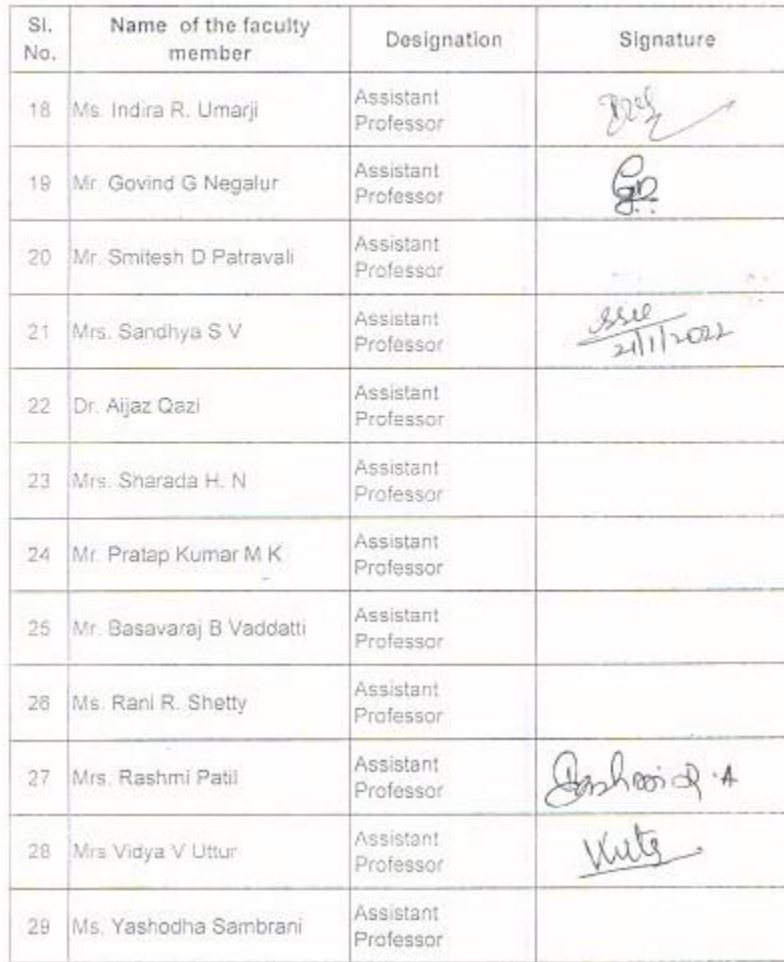 Sl. No. Name of the faculty member Designation Signature
18 Ms. Indira R. Umarji Assistant Professor
19 Mr. Govind G Negalur Assistant Professor
20 Mr. Smitesh D Patravali Assistant Professor
21 Mrs. Sandhya S V Assistant Professor
21/1/2022
22 Dr. Aijaz Qazi Assistant Professor
23 Mrs. Sharada H. N Assistant Professor
24 Mr. Pratap Kumar M K Assistant Professor
25 Mr. Basavaraj B Vaddatti Assistant Professor
26 Ms. Rani R. Shetty Assistant Professor
27 Mrs. Rashmi Patil Assistant Professor
28 Mrs Vidya V Uttur Assistant Professor
29 Ms. Yashodha Sambrani Assistant Professor